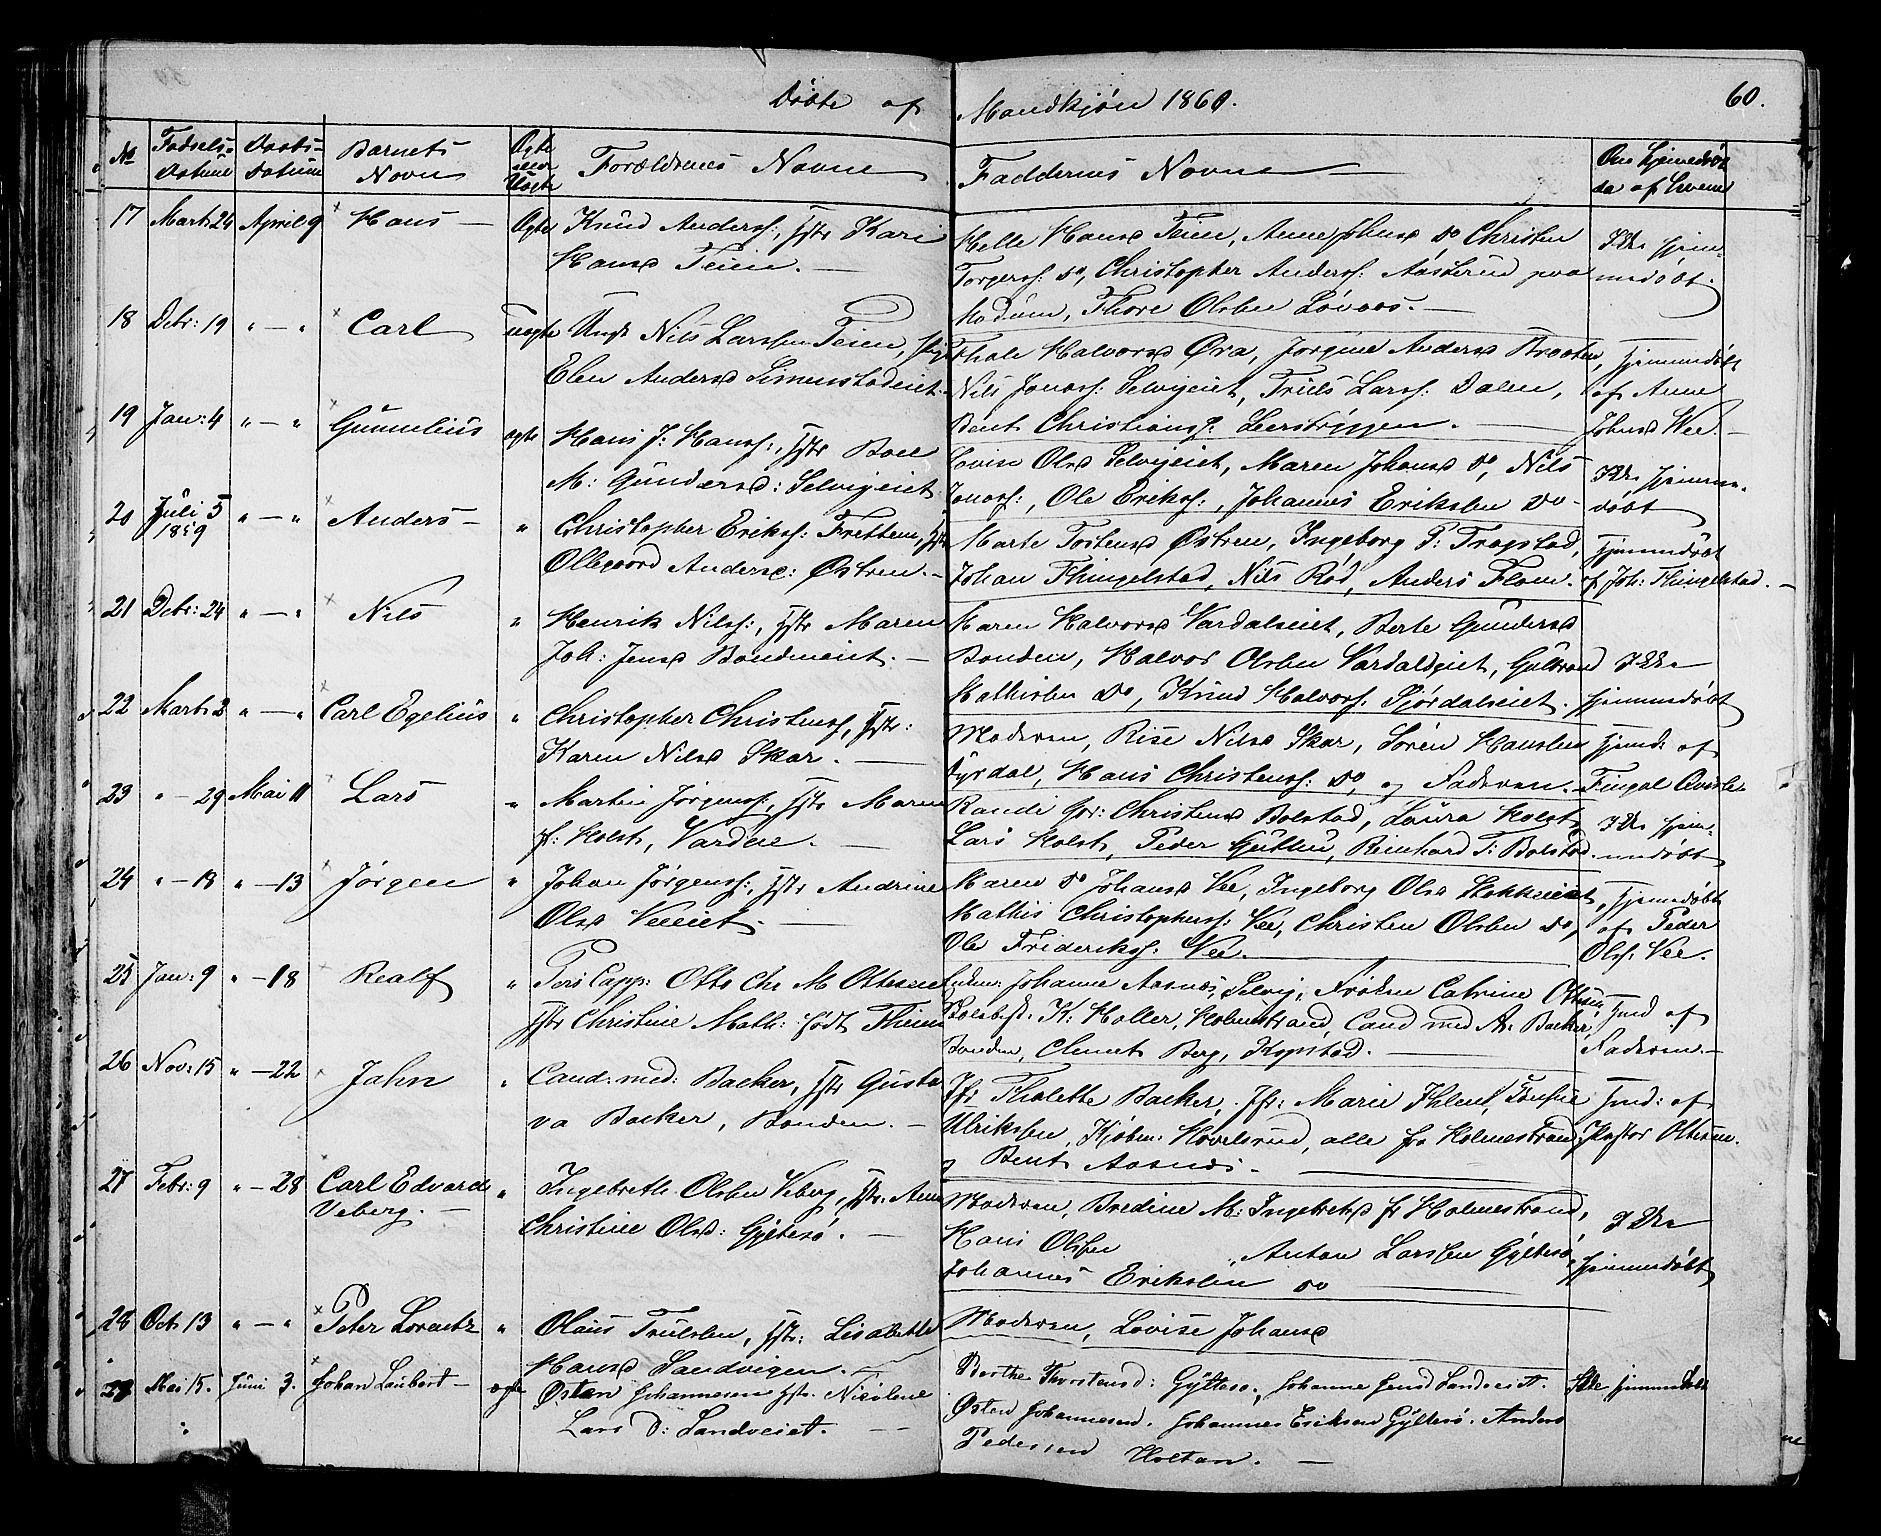 Døbte af Mandkjøn 1860. 60.
No Fødsels-Datum Daabs-Datum Barnets Navn Ægte eller Uægte Forældrenes Navne Faddernes Navne Om hjemmedøbt
17 Marts 24 April 9 Hans — Ægte Knud Anderss:, Hstr Kari
Hansd Teien. —
Helle Hansd Teien, Anne Johnsd do Christen
Torgerss: do, Christopher Anderss: Aaslerud paa
Modum, Thore Olsen Løvaas. —
Ikke hjem-
medøbt.
18 Debr: 19 " — " Carl uægte Ungk Nils Larssen Teien, Pige
Elen Andersd Simenstadeiet.
Thale Halvorsd Øra, Jørgine Andersd Braaten,
Nils Jonass: Selvigeiet, Truls Larss: Dalen,
Bent Christianss: Leerstryggen. —
hjemmedøbt
af Anne
Johnsd Wee. —
19 Jan: 4 " — " Gunnelius ægte Hans J: Hanss:, Hstr Boel
M: Gundersd: Selvigeiet
Lovise Olsd Selvigeiet, Maren Johansd do, Nils
Jonass:, Ole Erikss:, Johannes Eriksen do -
Ikke hjemme-
døbt
20 Juli 5 1859 " — " Anders — " Christopher Erikss: Fretten, Hstr
Ollegaard Andersd: Østren. —
Marte Tostensd Østren, Ingeborg P: Trogstad,
Johan Thingelstad, Nils Rød, Anders Flom.
hjemmedøbt
af Joh: Thingelstad. —
21 Debr: 24 " — " Nils " Henrik Nilss:, Hstr Maren
Joh: Jensd Bondeneiet. —
Maren Halvorsd Vardalseiet, Berte Gundersd
Bonden, Halvor Olsen Vardalseiet, Gulbrand
Mathisen do, Knud Halvors. Fjordalseiet.
Ikke
hjemmedøbt
22 Marts 2 " — " Carl Egelius " Christopher Christenss, Hstr:
Karen Nilsd Skar. —
Moderen, Rise Nilsd Skar, Søren Hansen
Dyrdal, Hans Christenss: do, og Faderen.
hjemd: af
23 " — 29 Mai 11 Lars " Martin Jørgenss:, Hstr Maren
f: Holst, Vardal. —
Randi Gor: Christensd Bolstad, Laura Holst
Lars Holst, Peder Gutten, Reinhard T: Bolstad.
Ikke hjem-
medøbt
24 " — 18 " — 13 Jørgen " Johan Jørgenss:, Hstr Andrine
Olsd Veeeiet. —
Maren do Johansd Vee, Ingeborg Olsd Stokkeeiet,
Mathis Christopherss: Vee, Christen Olsen do,
Ole Frideriksss: Vee.
hjemmedøbt
af Peder
Olss: Vee.
25 Jan: 9 " — 18 Realf " Pers Capp: Otto Chr M Ottesen
Hstr Christine Math: født Thiem
Johanne Aasnes, Selvig, Frøken Catrine Ottesen,
K: Holler, Holmestrand, Cand med A: Backer,
Bonden, Clemet Berg, Kopstad. —
hjmd af
Faderen. —
26 Nov: 15 " — 22 Jahn " Cand: med: Backer, Hstr Gusta
va Backer, Bonden. —
Jfr Tholette Backer, Jfr: Marie Ihlen,
Ulriksen, Kjøbm: Hovelsrud, alle fra Holmestrand,
og Bent Aasnes. —
hjmd: af
Pastor Ottesen.
27 Febr: 9 " — 28 Carl Edvard
Veberg. — " Ingebreth Olsen Veberg, Hstr: Anne
Christine Olsd: Gyltesø. —
Moderen, Bredine M: Ingebretsd fr Holmestrand,
Hans Olsen " Anton Larssen Gyltesø,
Johannes Eriksen do
Ikke
hjemmedøbt
28 Oct 13 " — " Peter Lorentz " Olaus Trulsen, Hstr: Lisabeth
Hansd Sandvigen. —
Moderen, Lovise Johansd
29 Mai 15. Juni 3. Johan Laubert — ægte Østen Johannesen Hstr. Nicoline
Lars D: Sandveiet. —
Berthe Thorstensd: Gyltesø, Johanne Jensd Sandveiet.
Østen Johannesen. Johannes Eriksen Gyltesø. Anders
Pedersen Holtan. —
Ikke hjemmedøbt